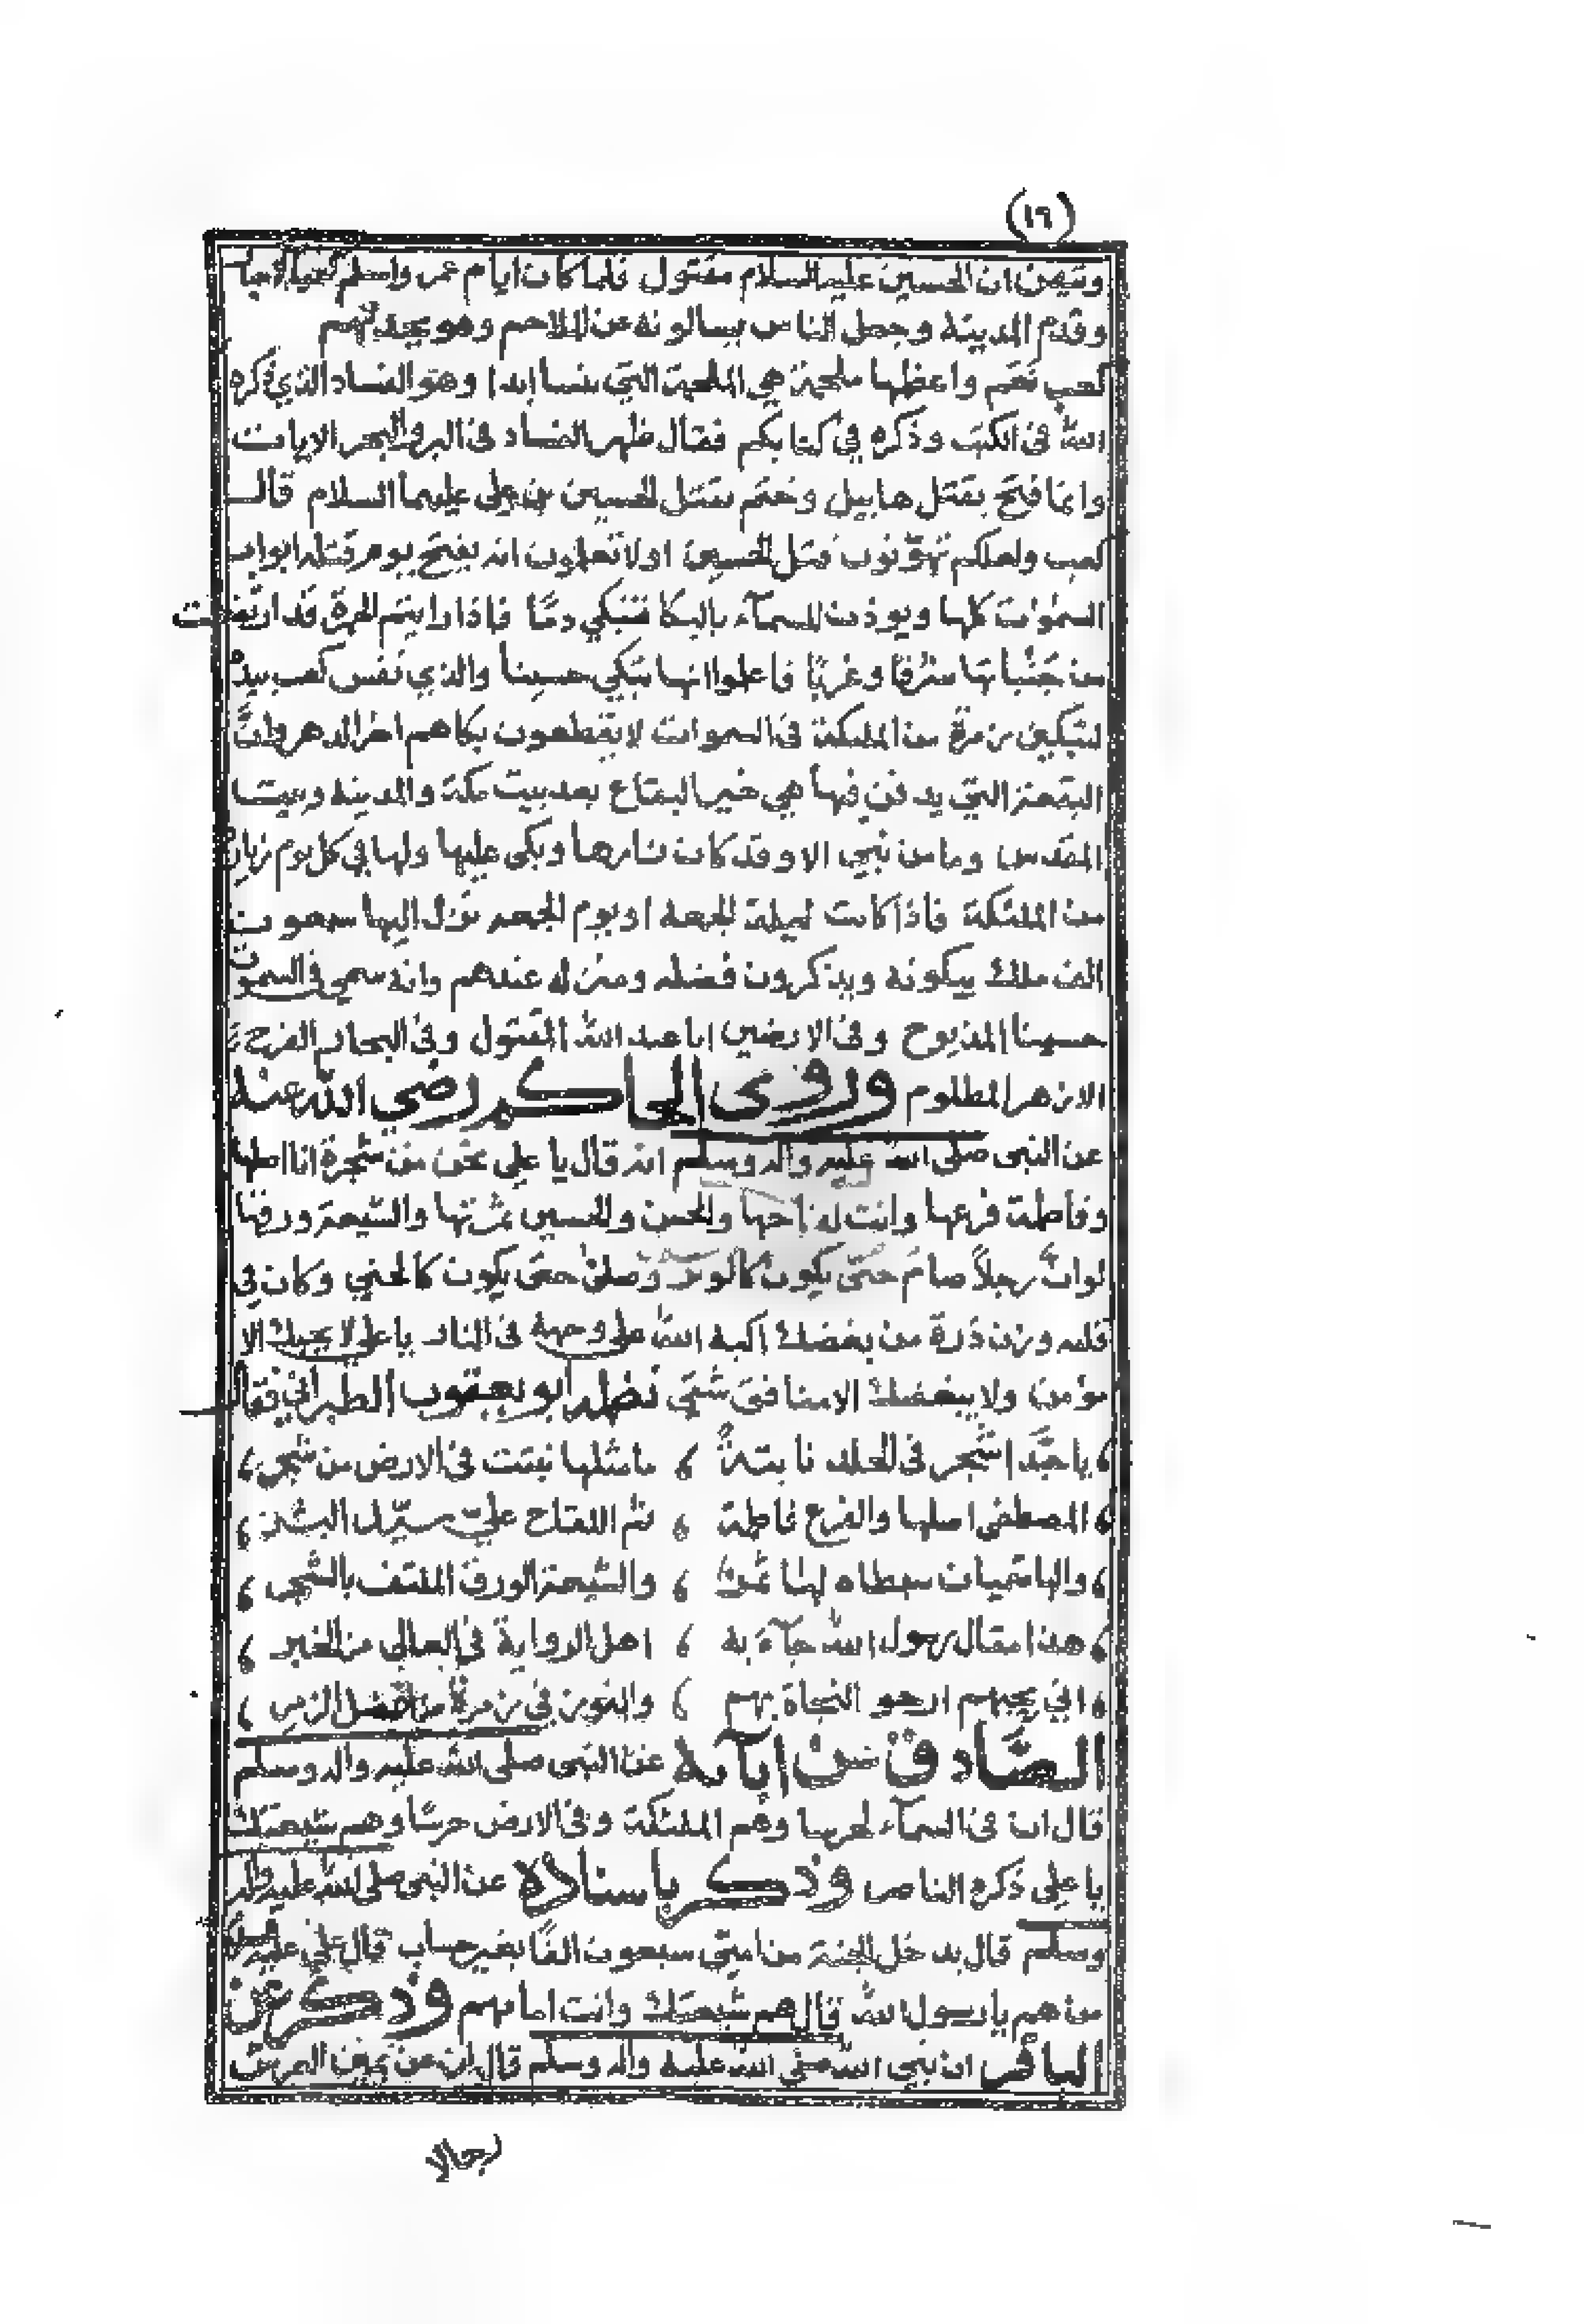 (١٩)
وتيقن ان الحسين عليه السلام مقتول فلما كان ايام عمر واسلم كعب الاحبار
وقدم المدينة وجعل الناس يسالونه عن الملاحم وهو يحدثهم
كعب نعم واعظمها ملحمة هي الملحمة التي لا تنسا ابدا وهو الفساد الذي ذكره
الله في الكتب وذكره في كتابكم فقال ظهر الفساد في البر والبحر الايات
وانما فتح بقتل هابيل وختم بقتل الحسين بن علي عليهما السلام قال
كعب ولعلكم تهونون قتل الحسين اولا تعلمون انه يفتح يوم قتله ابواب
السموات كلها ويوذن للسمآء بالبكا فتبكي دمًا فاذا رايتم الحمرة قد ارتفعت
من جنباتها شرقًا وغربًا فاعلموا انها تبكي حسينا والذي نفس كعب بيده
لتبكين زمرة من الملئكة في السموات لا يقطعون بكاهم اخر الدهر وان
البقعة التي يدفن فيها هي خير البقاع بعد بيت مكة والمدينة وبيت
المقدس وما من نبي الا وقد كان زارها وبكى عليها ولها في كل يوم زيارة
من الملئكة فاذا كانت ليلة الجمعة او يوم الجمعه نزل اليها سبعون
الف ملك يبكونه ويذكرون فضله ومنزله عندهم وانه سمي في السموات
حسينا المذبوح وفي الارضين ابا عبد الله المقتول وفي البحار الفرخ
الازهر المظلوم وروى الحاكم رضي الله عنه
عن النبي صلى الله عليه واله وسلم انه قال يا علي نحن من شجرة انا اصلها
وفاطمة فرعها وانت لقاحها والحسن والحسين ثمرتها والشيعة ورقها
لوان رجلاً صام حتى يكون كالوتر وصلى حتى يكون كالحني وكان في
قلبه وزن ذرة من بغضك اكبه الله على وجهه في النار يا علي لا يحبك الا
مؤمن ولا يبغضك الا منافق شقي نظمه ابو يعقوب الطبراني فقال
، يا حبذا شجر في الخلد نابتةً ، ما مثلها نبتت في الارض من شجر ،
، المصطفى اصلها والفرع فاطمة ، ثم اللقاح علي سيد البشر ،
، والهاشميان سبطاه لها ثمر ، والشيعة الورق الملتف بالشجر ،
، هذا مقال رسول الله جآء به ، اهل الرواية في العالي من الخبر ،
، اني بحبهم ارجو النجاة بهم ، والفوز في زمرة من افضل الزمر ،
الصادق عن ابآئه عن النبي صلى الله عليه واله وسلم
قال ان في السمآء لحرسا وهم الملئكة وفي الارض حرسًا وهم شيعتك
يا علي ذكره الناصر وذكر باسناده عن النبي صلى الله عليه واله
وسلم قال يدخل الجنة من امتي سبعون الفًا بغير حساب قال علي عليه السلام
من هم يا رسول الله قال هم شيعتك وانت امامهم وذكر عن
الباقر ان نبي الله صلى الله عليه واله وسلم قال ان عن يمين العرش
رجالا